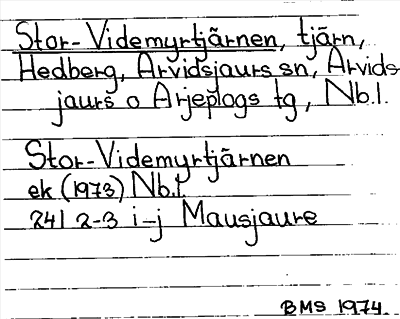 Stor-Videmyrtjärnen, tjärn,
Hedberg, Arvidsjaurs sn, Arvids-
jaurs o Arjeplogs tg, Nb.l.
Stor-Videmyrtjärnen
ek (1973) Nb.l.
24I 2-3 i-j Mausjaure
BMS 1974.